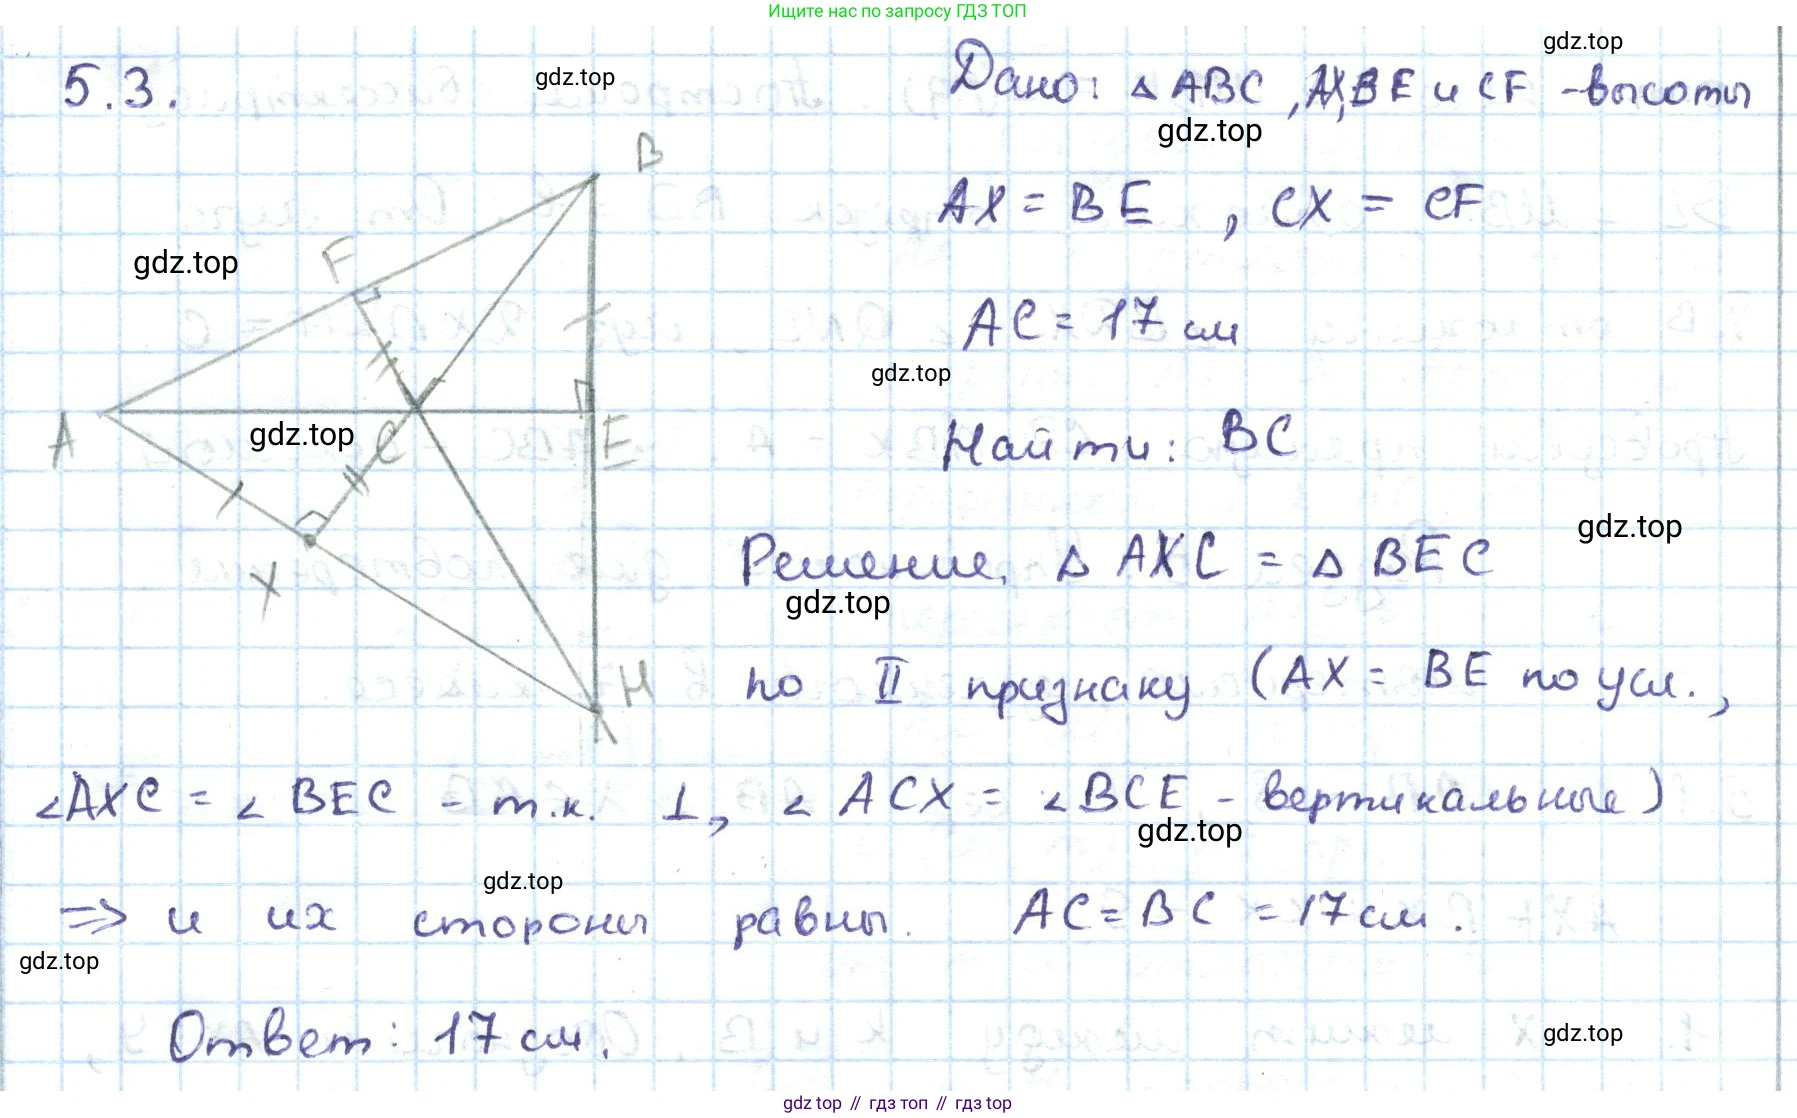 Ищите нас по запросу ГДЗ ТОП
gdz.top
gdz.top
5.3.
Дано: △ ABC, AX, BE и CF -высоты
gdz.top
B
AX = BE , CX = CF
F
gdz.top
AC = 17 см
gdz.top
A
gdz.top
C
E
Найти: BC
gdz.top
X
Решение. △ AXC = △ BEC
gdz.top
H
по II признаку (AX = BE по усл.,
∠AXC = ∠ BEC - т.к. ⊥, ∠ ACX = ∠BCE - вертикальные)
gdz.top
gdz.top
⇒ и их стороны равны. AC = BC = 17 см.
gdz.top
Ответ: 17 см.
gdz.top
gdz top // гдз топ // гдз top